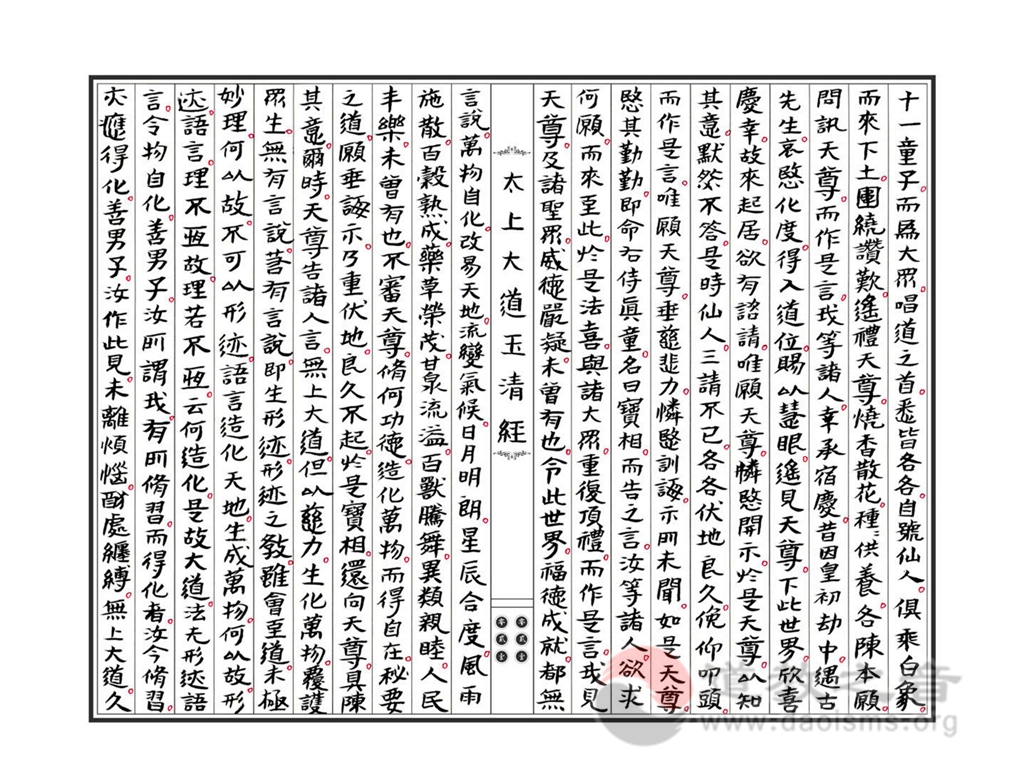 十一童子而爲大眾唱道之首悉皆各各自號仙人俱乘白象
而來下土圍繞讚歎遙禮天尊燒香散花種種供養各陳本願
問訊天尊而作是言我等諸人幸承宿慶昔因皇初劫中遇古
先生哀愍化度得入道位賜以慧眼遙見天尊下此世界欣喜
慶幸故來起居欲有諮請唯願天尊憐愍開示於是天尊以知
其意默然不答是時仙人三請不已各各伏地良久俛仰叩頭
而作是言唯願天尊垂慈悲力憐愍訓誨示所未聞如是天尊
愍其勤勤即命右侍眞童名曰寶相而告之言汝等諸人欲求
何願而來至此於是法喜與諸大眾重復頂禮而作是言我見
天尊及諸聖眾威德嚴凝未曾有也令此世界福德成就都無
太上大道玉清經
言說萬物自化改易天地流變氣候日月明朗星辰合度風雨
施散百穀熟成藥草榮茂甘泉流溢百獸騰舞異類親睦人民
丰樂未曾有也不審天尊脩何功德造化萬物而得自在秘要
之道願垂誨示乃重伏地良久不起於是寶相還向天尊具陳
其意爾時天尊告諸人言無上大道但以慈力生化萬物覆護
眾生無有言說若有言說即生形迹形迹之教雖會至道未極
妙理何以故不可以形迹語言造化天地生成萬物何以故形
迹語言理不恆故理若不恆云何造化是故大道法无形迹語
言令物自化善男子汝所謂我有所脩習而得化者汝今脩習
亦應得化善男子汝作此見未離煩惱酬處纏縛無上大道久
道教之音
www.daoisms.org